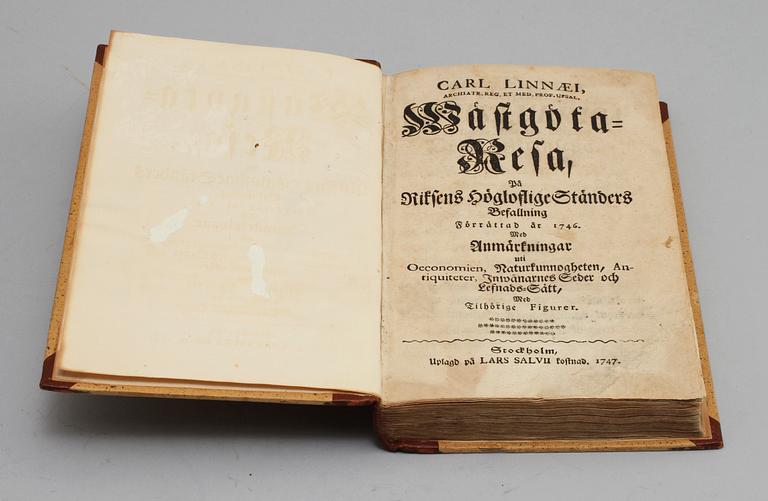 CARL LINNÆI,
ARCHIATR. REG. ET MED. PROF. UPSAL,
Wästgöta=
Resa,
På
Riksens Högloflige Ständers
Befallning
Förrättad år 1746.
Med
Anmärkningar
uti
Oeconomien, Naturkunnogheten, An-
tiquiteter, Inwånarnes Seder och
Lefnads=Sätt,
Med
Tilhörige Figurer.
Stockholm,
Uplagd på LARS SALVII kostnad. 1747.